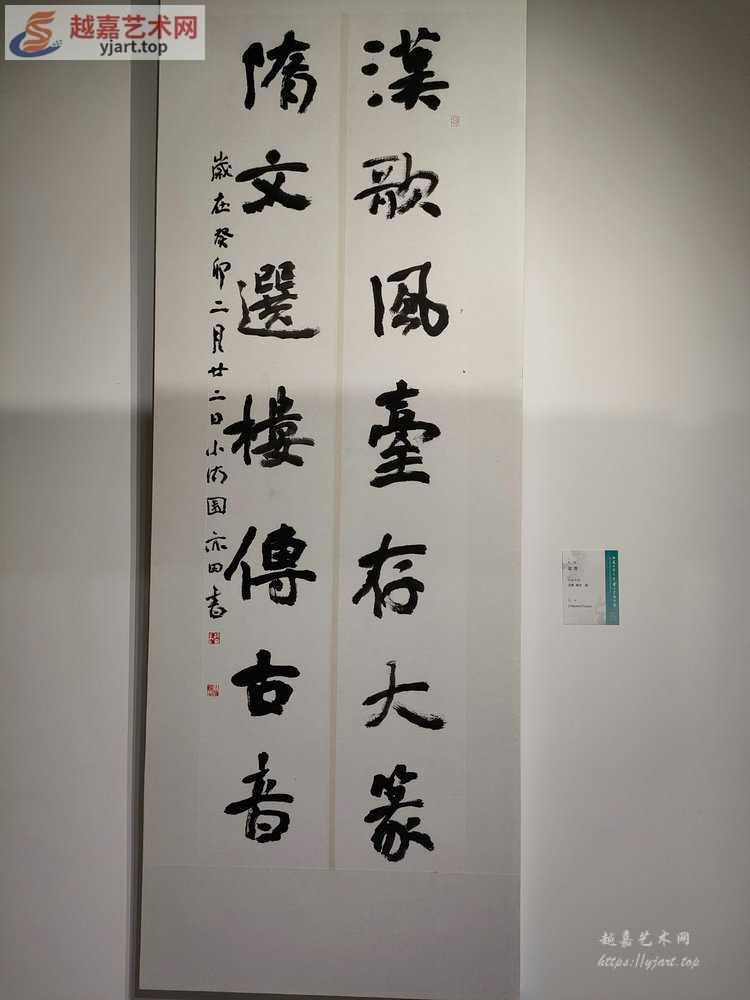 越嘉艺术网
yjart.top
漢歌風臺存大篆
隋文選樓傳古音
歲在癸卯二月廿二日小湖園亦田書
越嘉艺术网
https://yjart.top